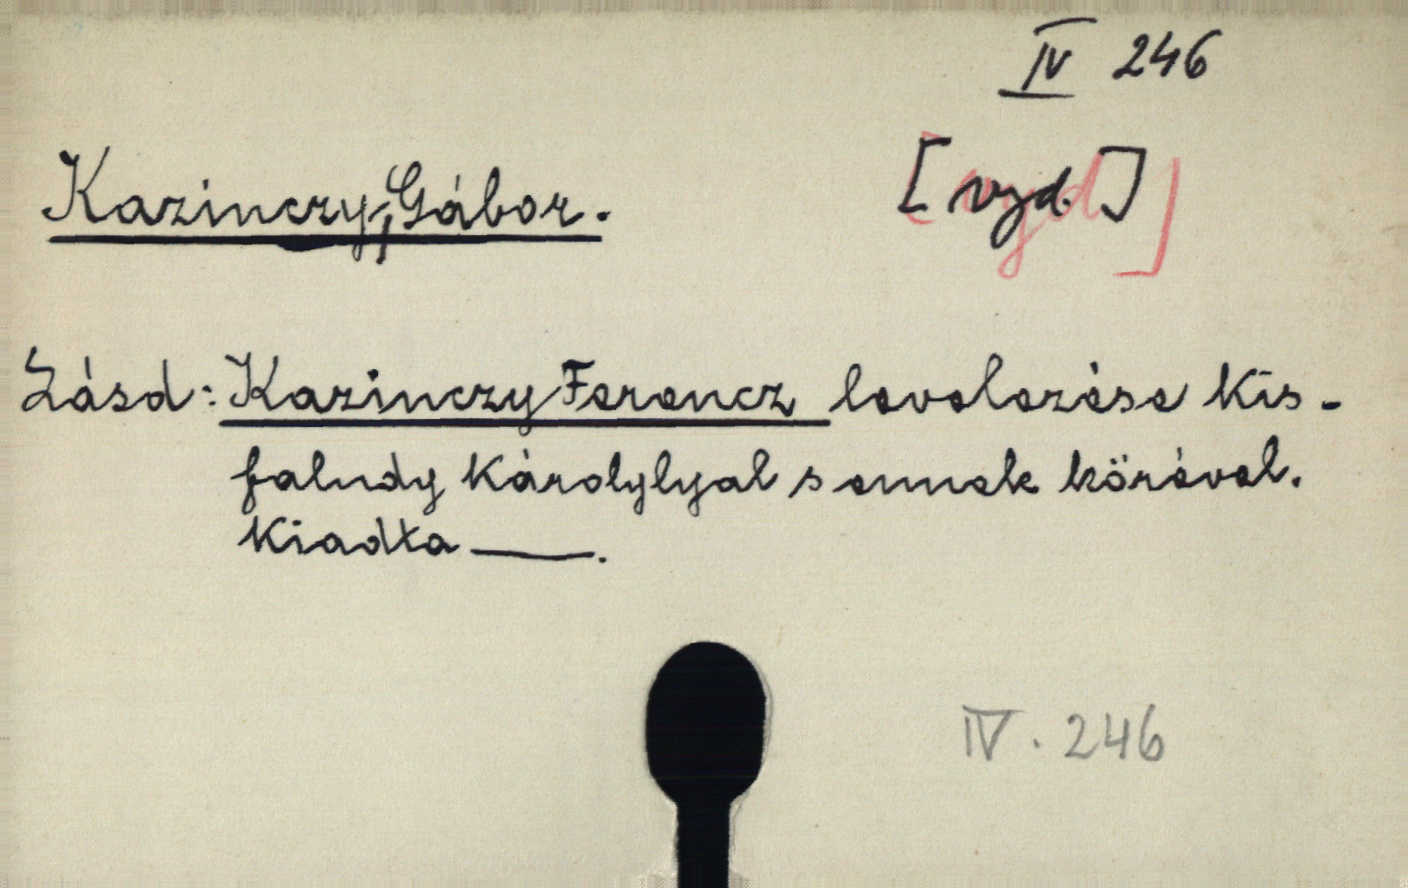 IV 246
Kazinczy, Gábor. [vyd.]
Lásd: Kazinczy Ferencz levelezése Kis-
faludy Károlylyal s ennek körével.
Kiadta ——.
IV. 246